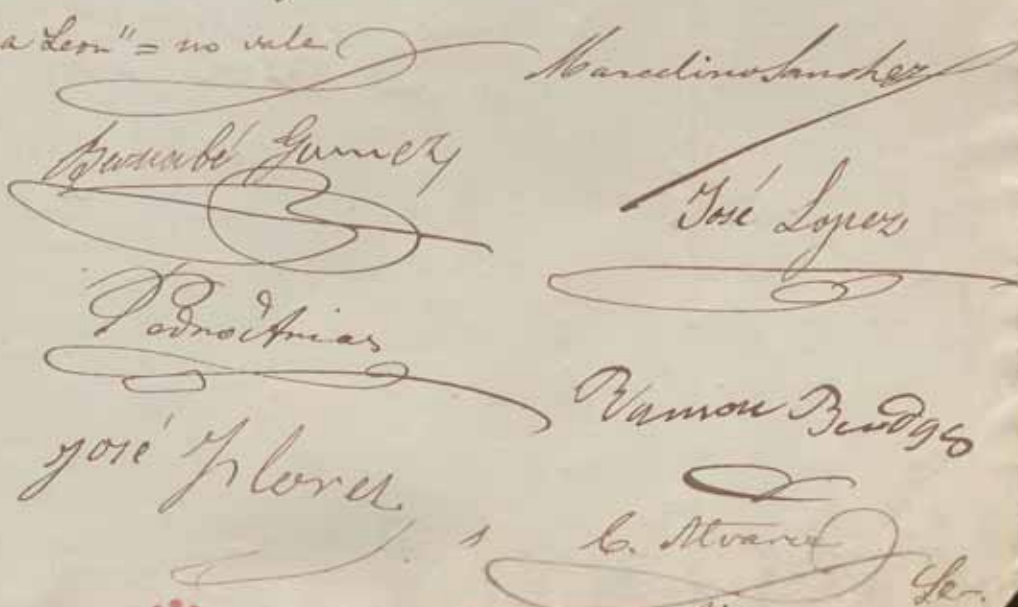 a Leon" = no vale
Marcelino Sanchez
Bernabé Gomez
José Lopez
Pedro Arias
Ramon
José Florez
C. Alvarez